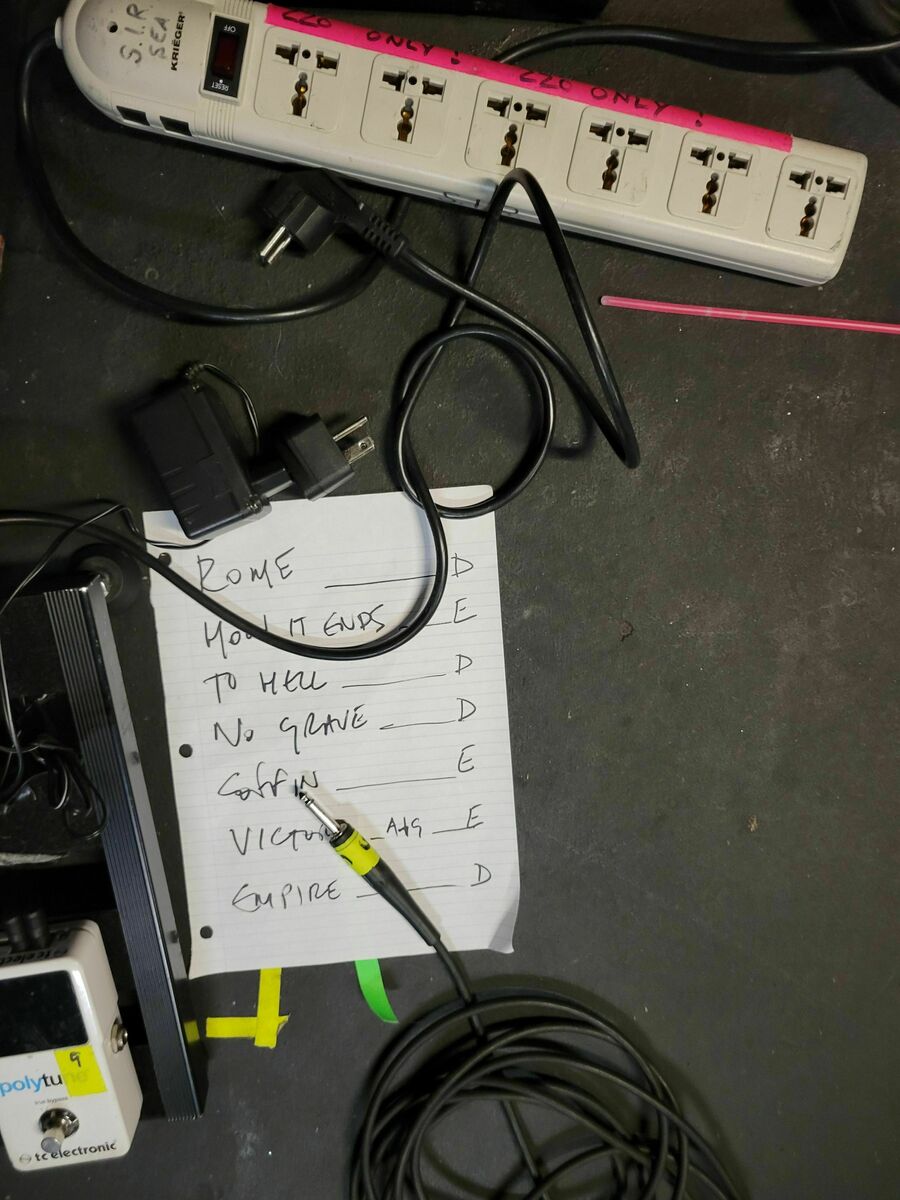 S.I.R.
SEA
KRIËGER
OFF
RESET
220 ONLY! 220 ONLY!
ROME D
HOW IT ENDS E
TO HELL D
NO GRAVE D
COFFIN E
VICTOR A+G E
EMPIRE D
9
polytune
true bypass
tc electronic